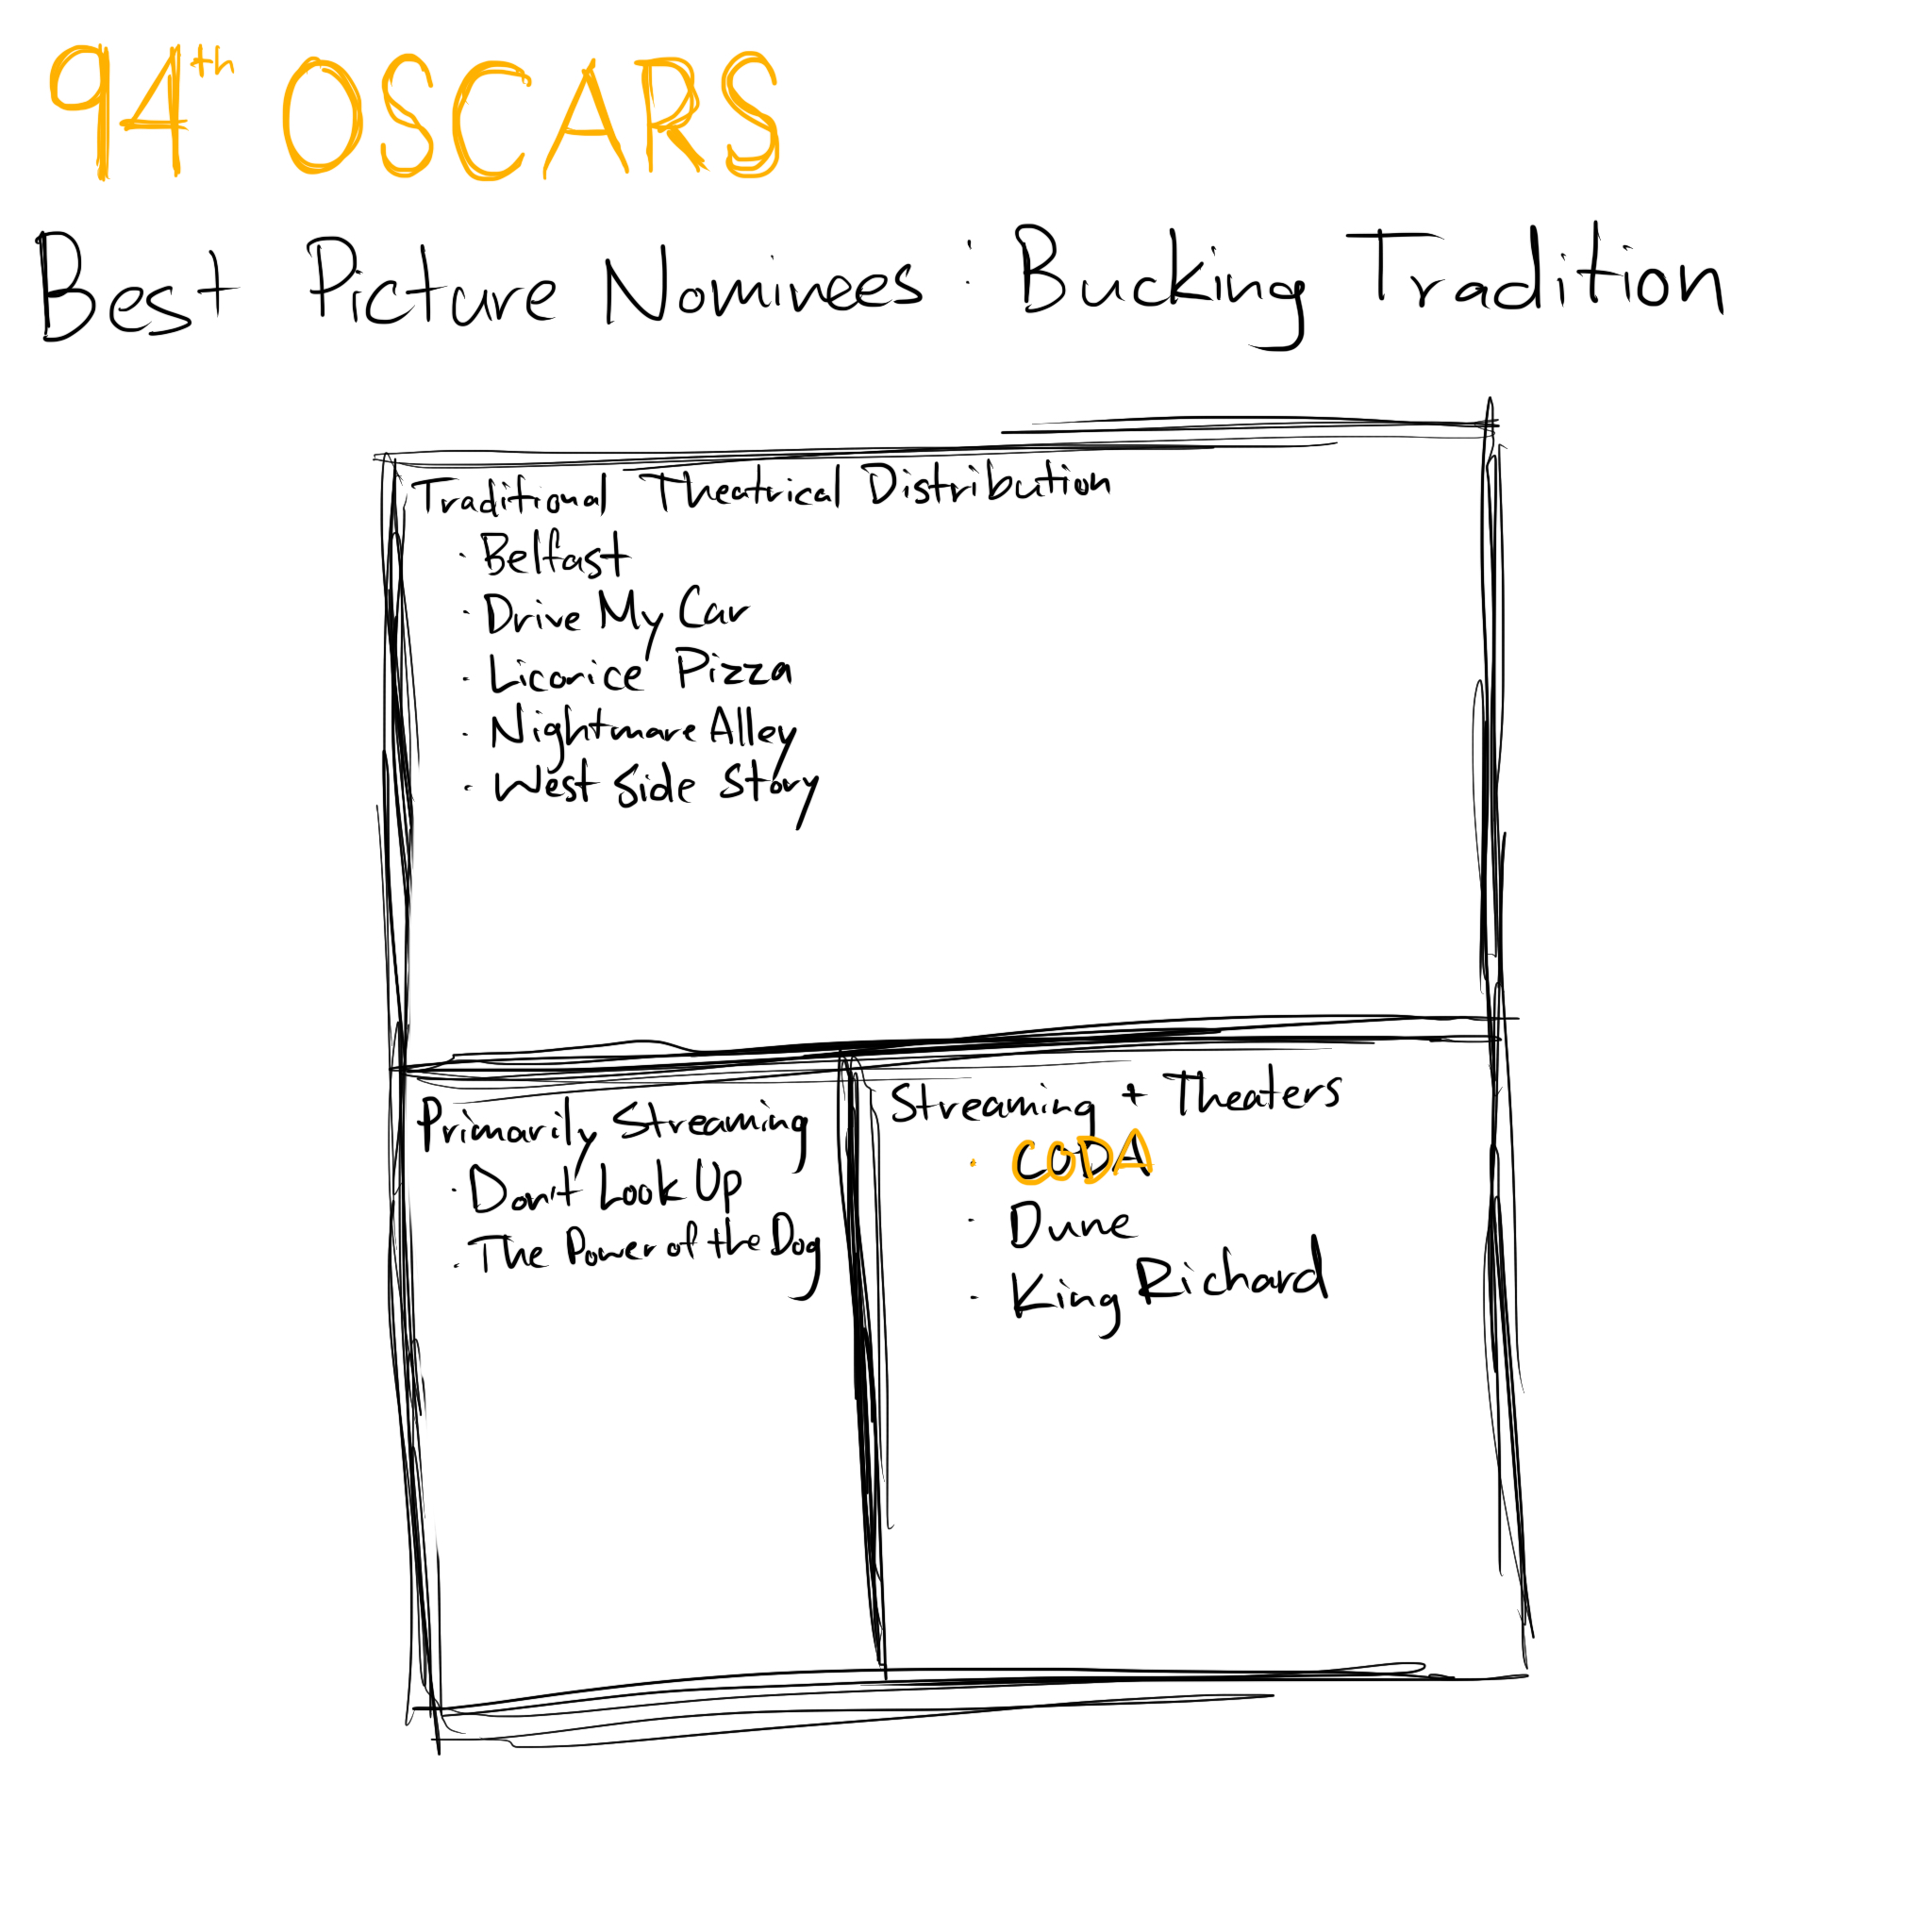 94th OSCARS
Best Picture Nominees: Bucking Tradition
Traditional Theatrical Distribution
· Belfast
· Drive My Car
· Licorice Pizza
· Nightmare Alley
· West Side Story
Primarily Streaming
· Don't Look Up
· The Power of the Dog
Streaming + Theaters
· CODA
· Dune
· King Richard